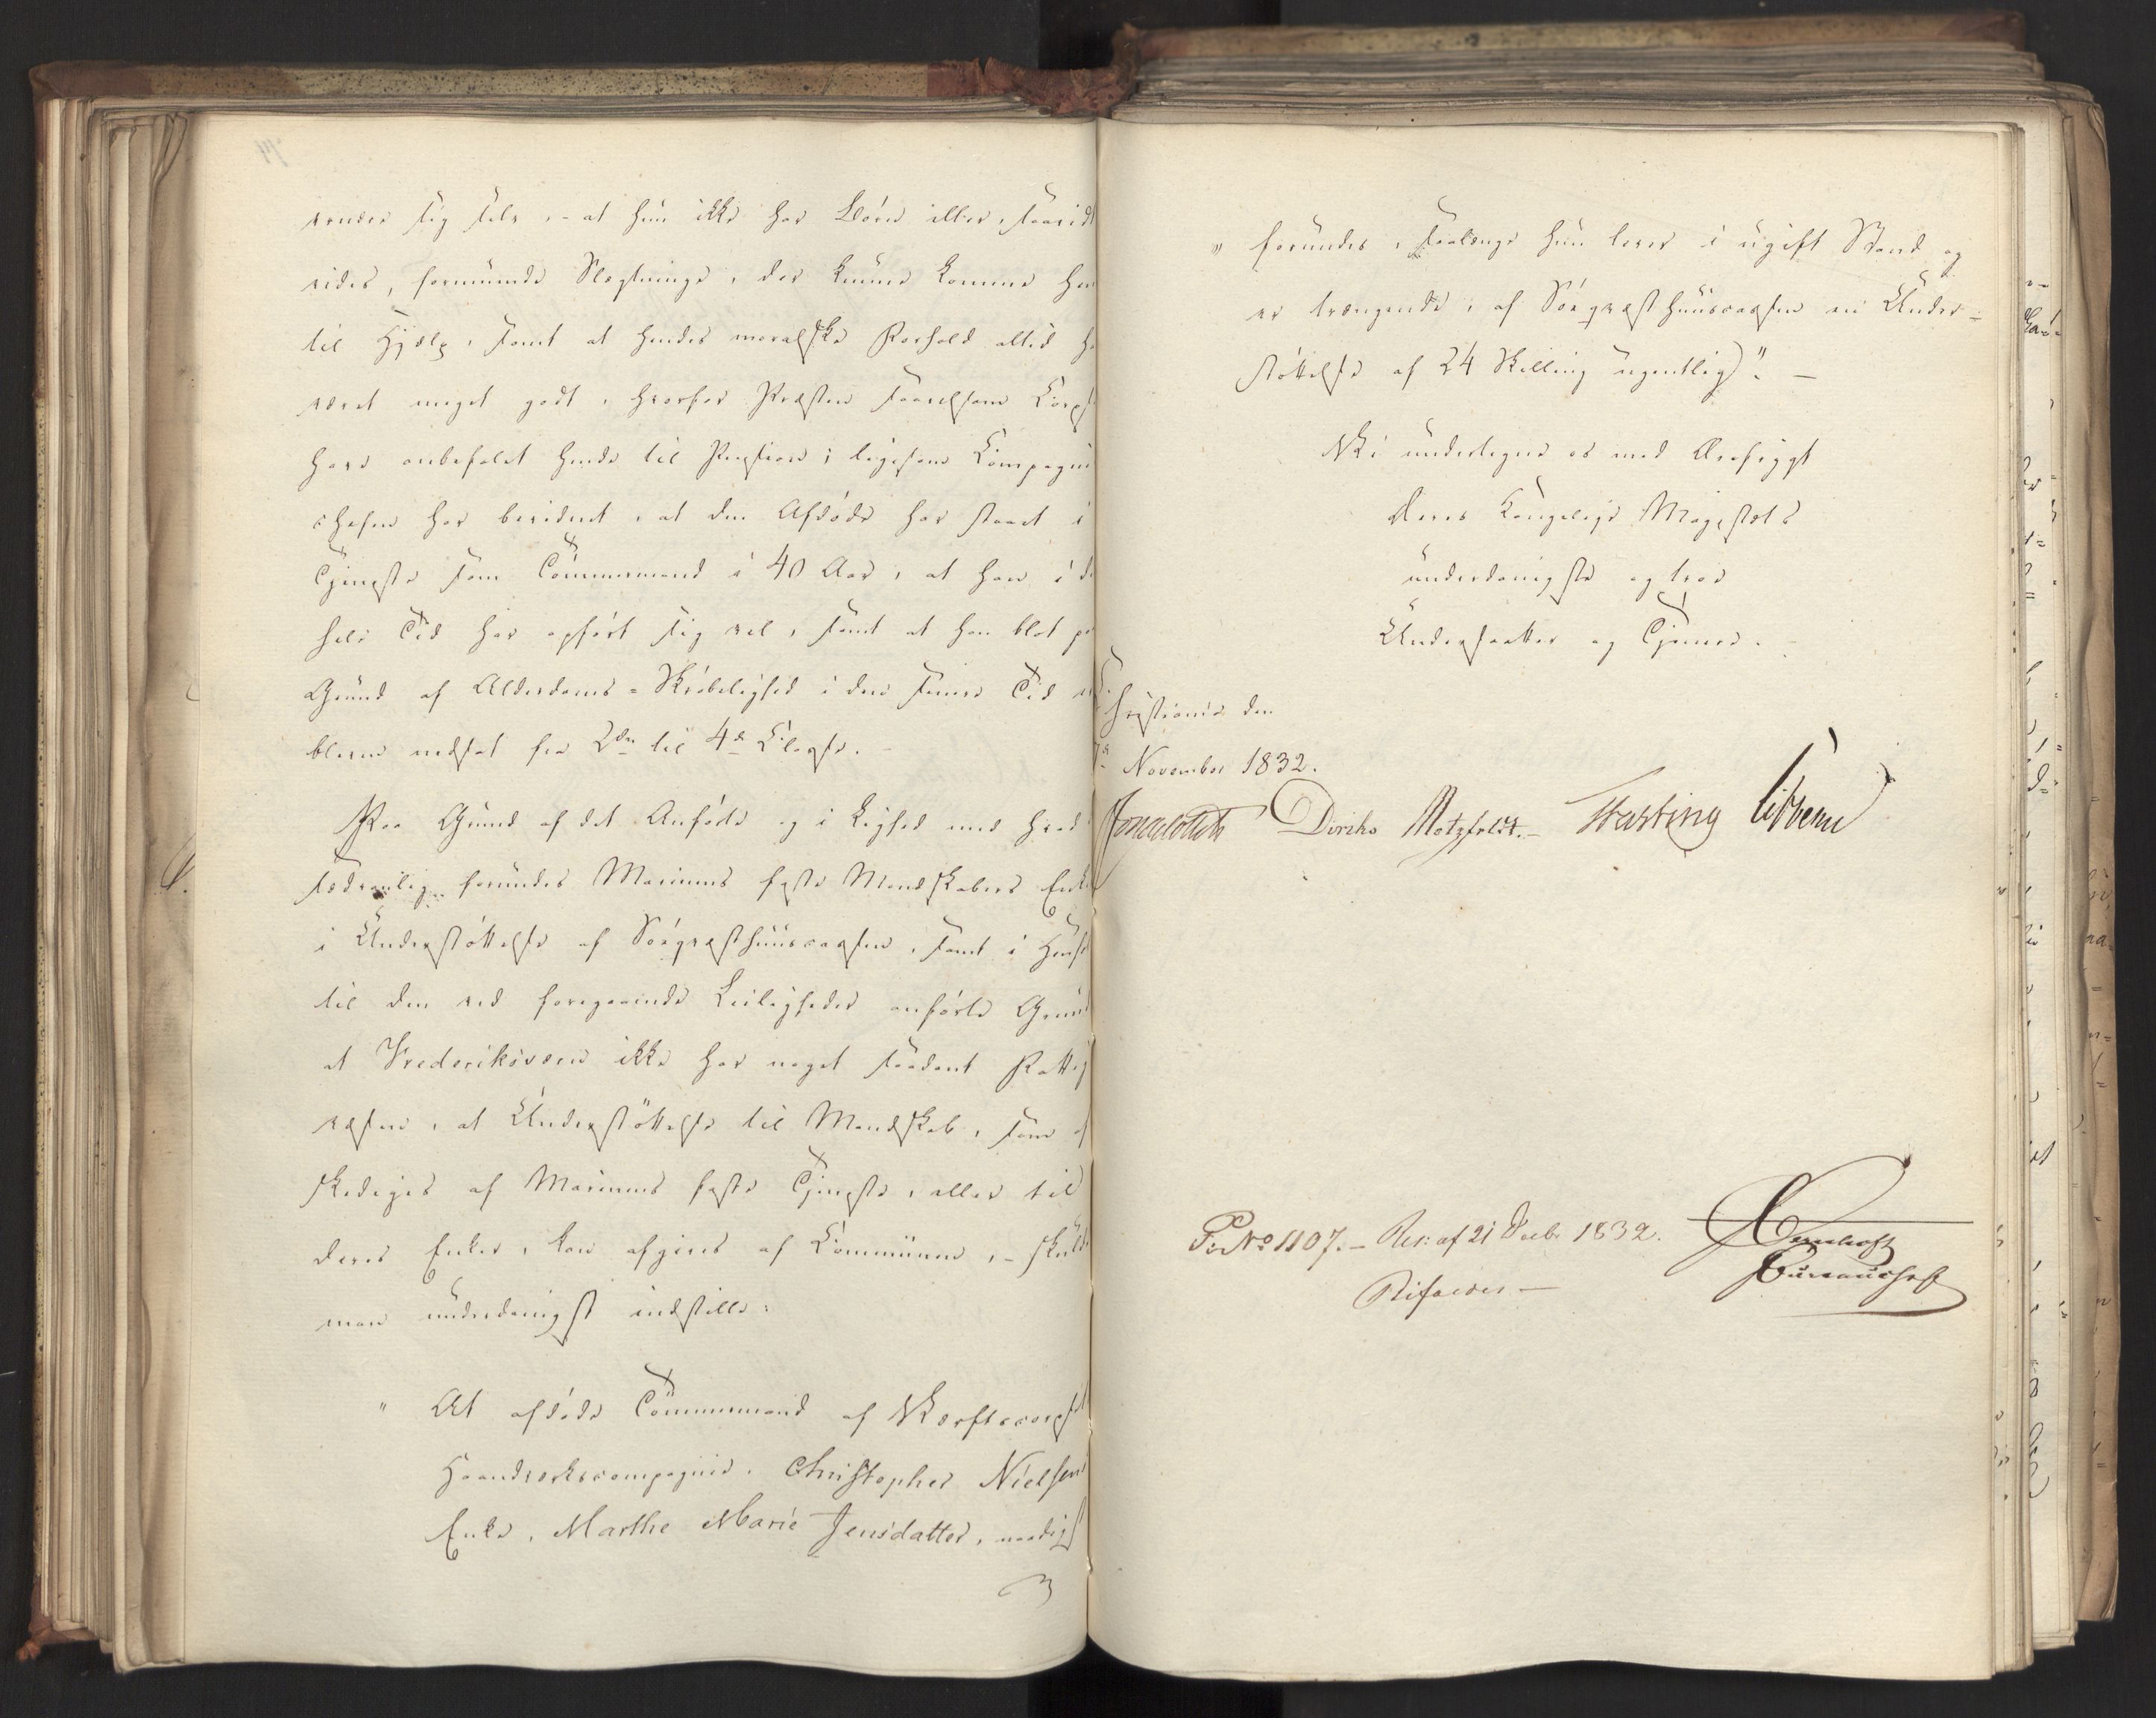 sig selv, - at hun ikke har Börn eller, saavidt
vides, formuende Slægtninge, der kunne komme hen
til Hjælp, samt at hendes moralske Forhold altid ha
været meget godt, hvorfor Præsten saavelsom Corps
have anbefalet hende til Pension; ligesom Compagnie
chefen har bevidnet, at den Afdöde har staaet i
Tjeneste som Tömmermand i 40 Aar, at han i de
hele Tid har opfört sig vel, samt at han blot pa
Grund af Alderdoms-Skröbelighed i den senere Tid er
bleven nedsat fra 2den til 4de Classe.
Paa Grund af det Anförte og i Lighed med hvad
sædvanlig forundes Marinens faste Mandskabers Enke
i Understöttelse af Söeqvæsthuuscassen, samt i Hens
til den ved foregaaende Leiligheder anförte Grund
at Frederiksværn ikke har noget saadant Fattig
væsen, at Understöttelse til Mandskab, som af
skediges af Marinens faste Tjeneste, eller til
deres Enker, kan afgives af Communen, - skulde
man underdanigst indstille:
" At afdöde Tömmermand af Værftscorpset
Haandværkscompagnie, Christopher Nielsens
Enke, Marthe Marie Jensdatter, naadigst
" forundes, saalænge hun lever i ugift Stand og
er trængende, af Söeqvæsthuuscassen en Under-
stöttelse af 24 Skilling ugentlig)". -
Vi undertegne os med Ærefrygt
Deres Kongelige Majestæts
underdanigste og troe
Undersaatter og Tjenere. -
Christiania den
November 1832.
Diriks Motzfeldt. - Fasting
P: No 1107. - Res: af 21 Decbr 1832.
Bureauchef